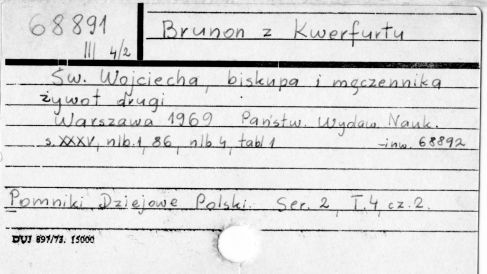 68891
III 4/2
Brunon z Kwerfurtu
Św. Wojciecha, biskupa i męczennika
żywot drugi
Warszawa 1969 Państw. Wydaw. Nauk.
s. XXXV, nlb. 1, 86, nlb. 4, tabl 1
-inw. 68892
Pomniki Dziejowe Polski. Ser. 2, T. 4, cz. 2.
DUJ 897/73. 15000